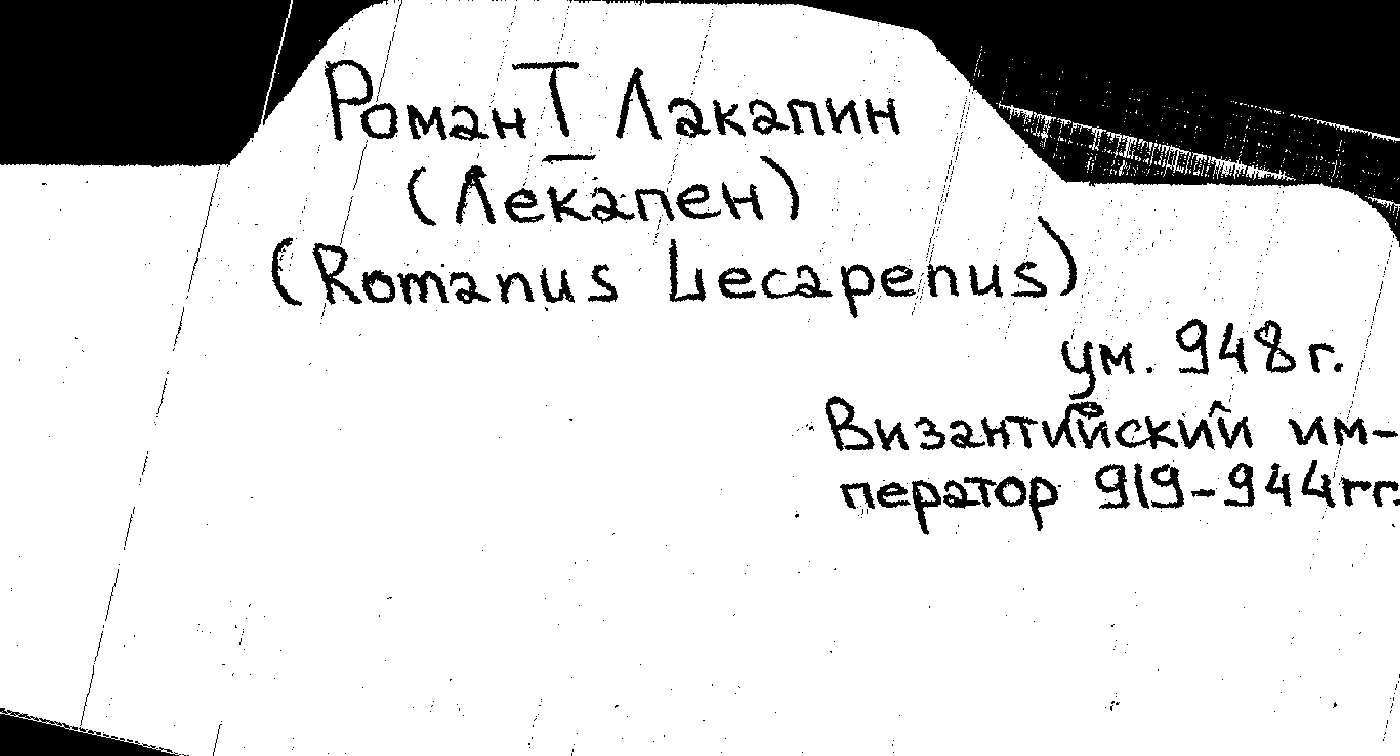 Роман I Лакапин
(Лекапен)
(Romanus Lecapenus)
ум. 948 г.
Византийский им-
ператор 919-944 гг.